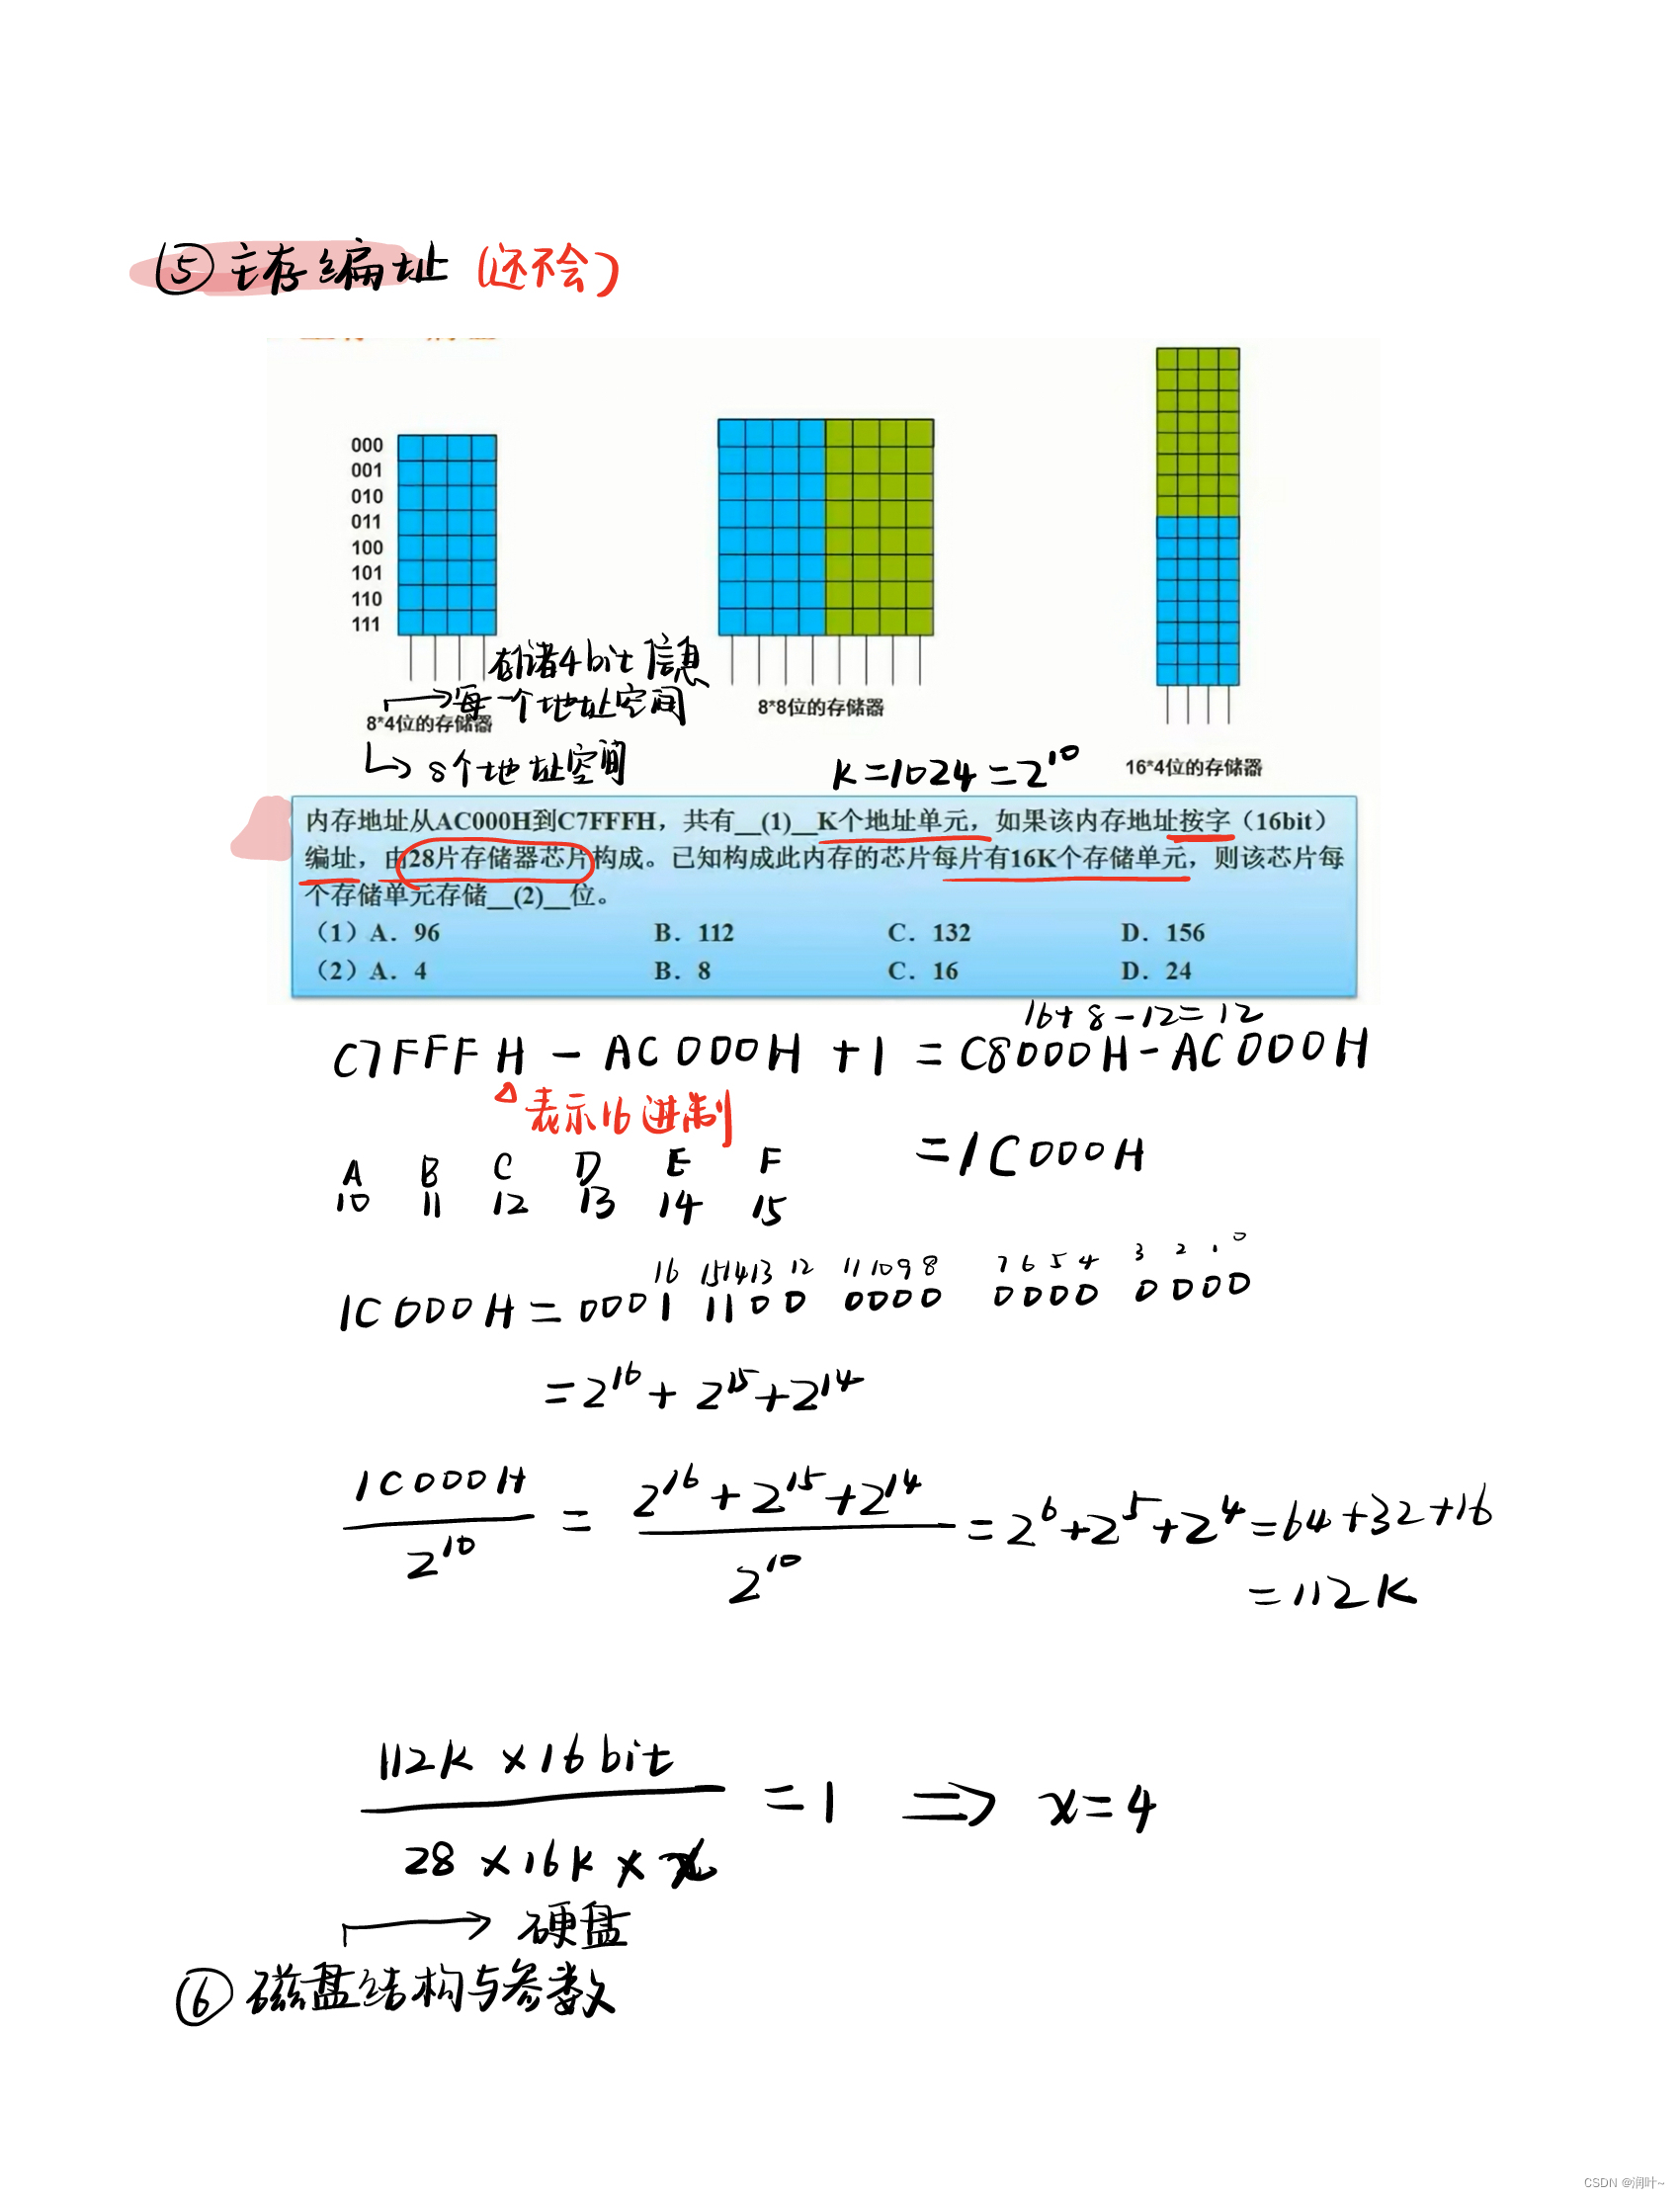 ⑤主存编址（还不会）
000
001
010
011
100
101
110
111
存储4bit信息
每一个地址空间
8*4位的存储器
8*8位的存储器
16*4位的存储器
8个地址空间
K=1024=2¹⁰
内存地址从AC000H到C7FFFH，共有__(1)__K个地址单元，如果该内存地址按字（16bit）
编址，由28片存储器芯片构成。已知构成此内存的芯片每片有16K个存储单元，则该芯片每
个存储单元存储__(2)__位。
（1）A．96 B．112 C．132 D．156
（2）A．4 B．8 C．16 D．24
16+8-12=12
C7FFFH - AC000H + 1 = C8000H - AC000H
表示16进制
=1C000H
A B C D E F
10 11 12 13 14 15
16 15 14 13 12 11 10 9 8 7 6 5 4 3 2 1 0
1C000H = 0001 1100 0000 0000 0000
=2¹⁶+2¹⁵+2¹⁴
1C000H/2¹⁰ = (2¹⁶+2¹⁵+2¹⁴)/2¹⁰ = 2⁶+2⁵+2⁴=64+32+16
=112K
112K×16bit/(28×16K×x) =1 ⇒ x=4
硬盘
⑥磁盘结构与参数
CSDN @润叶~